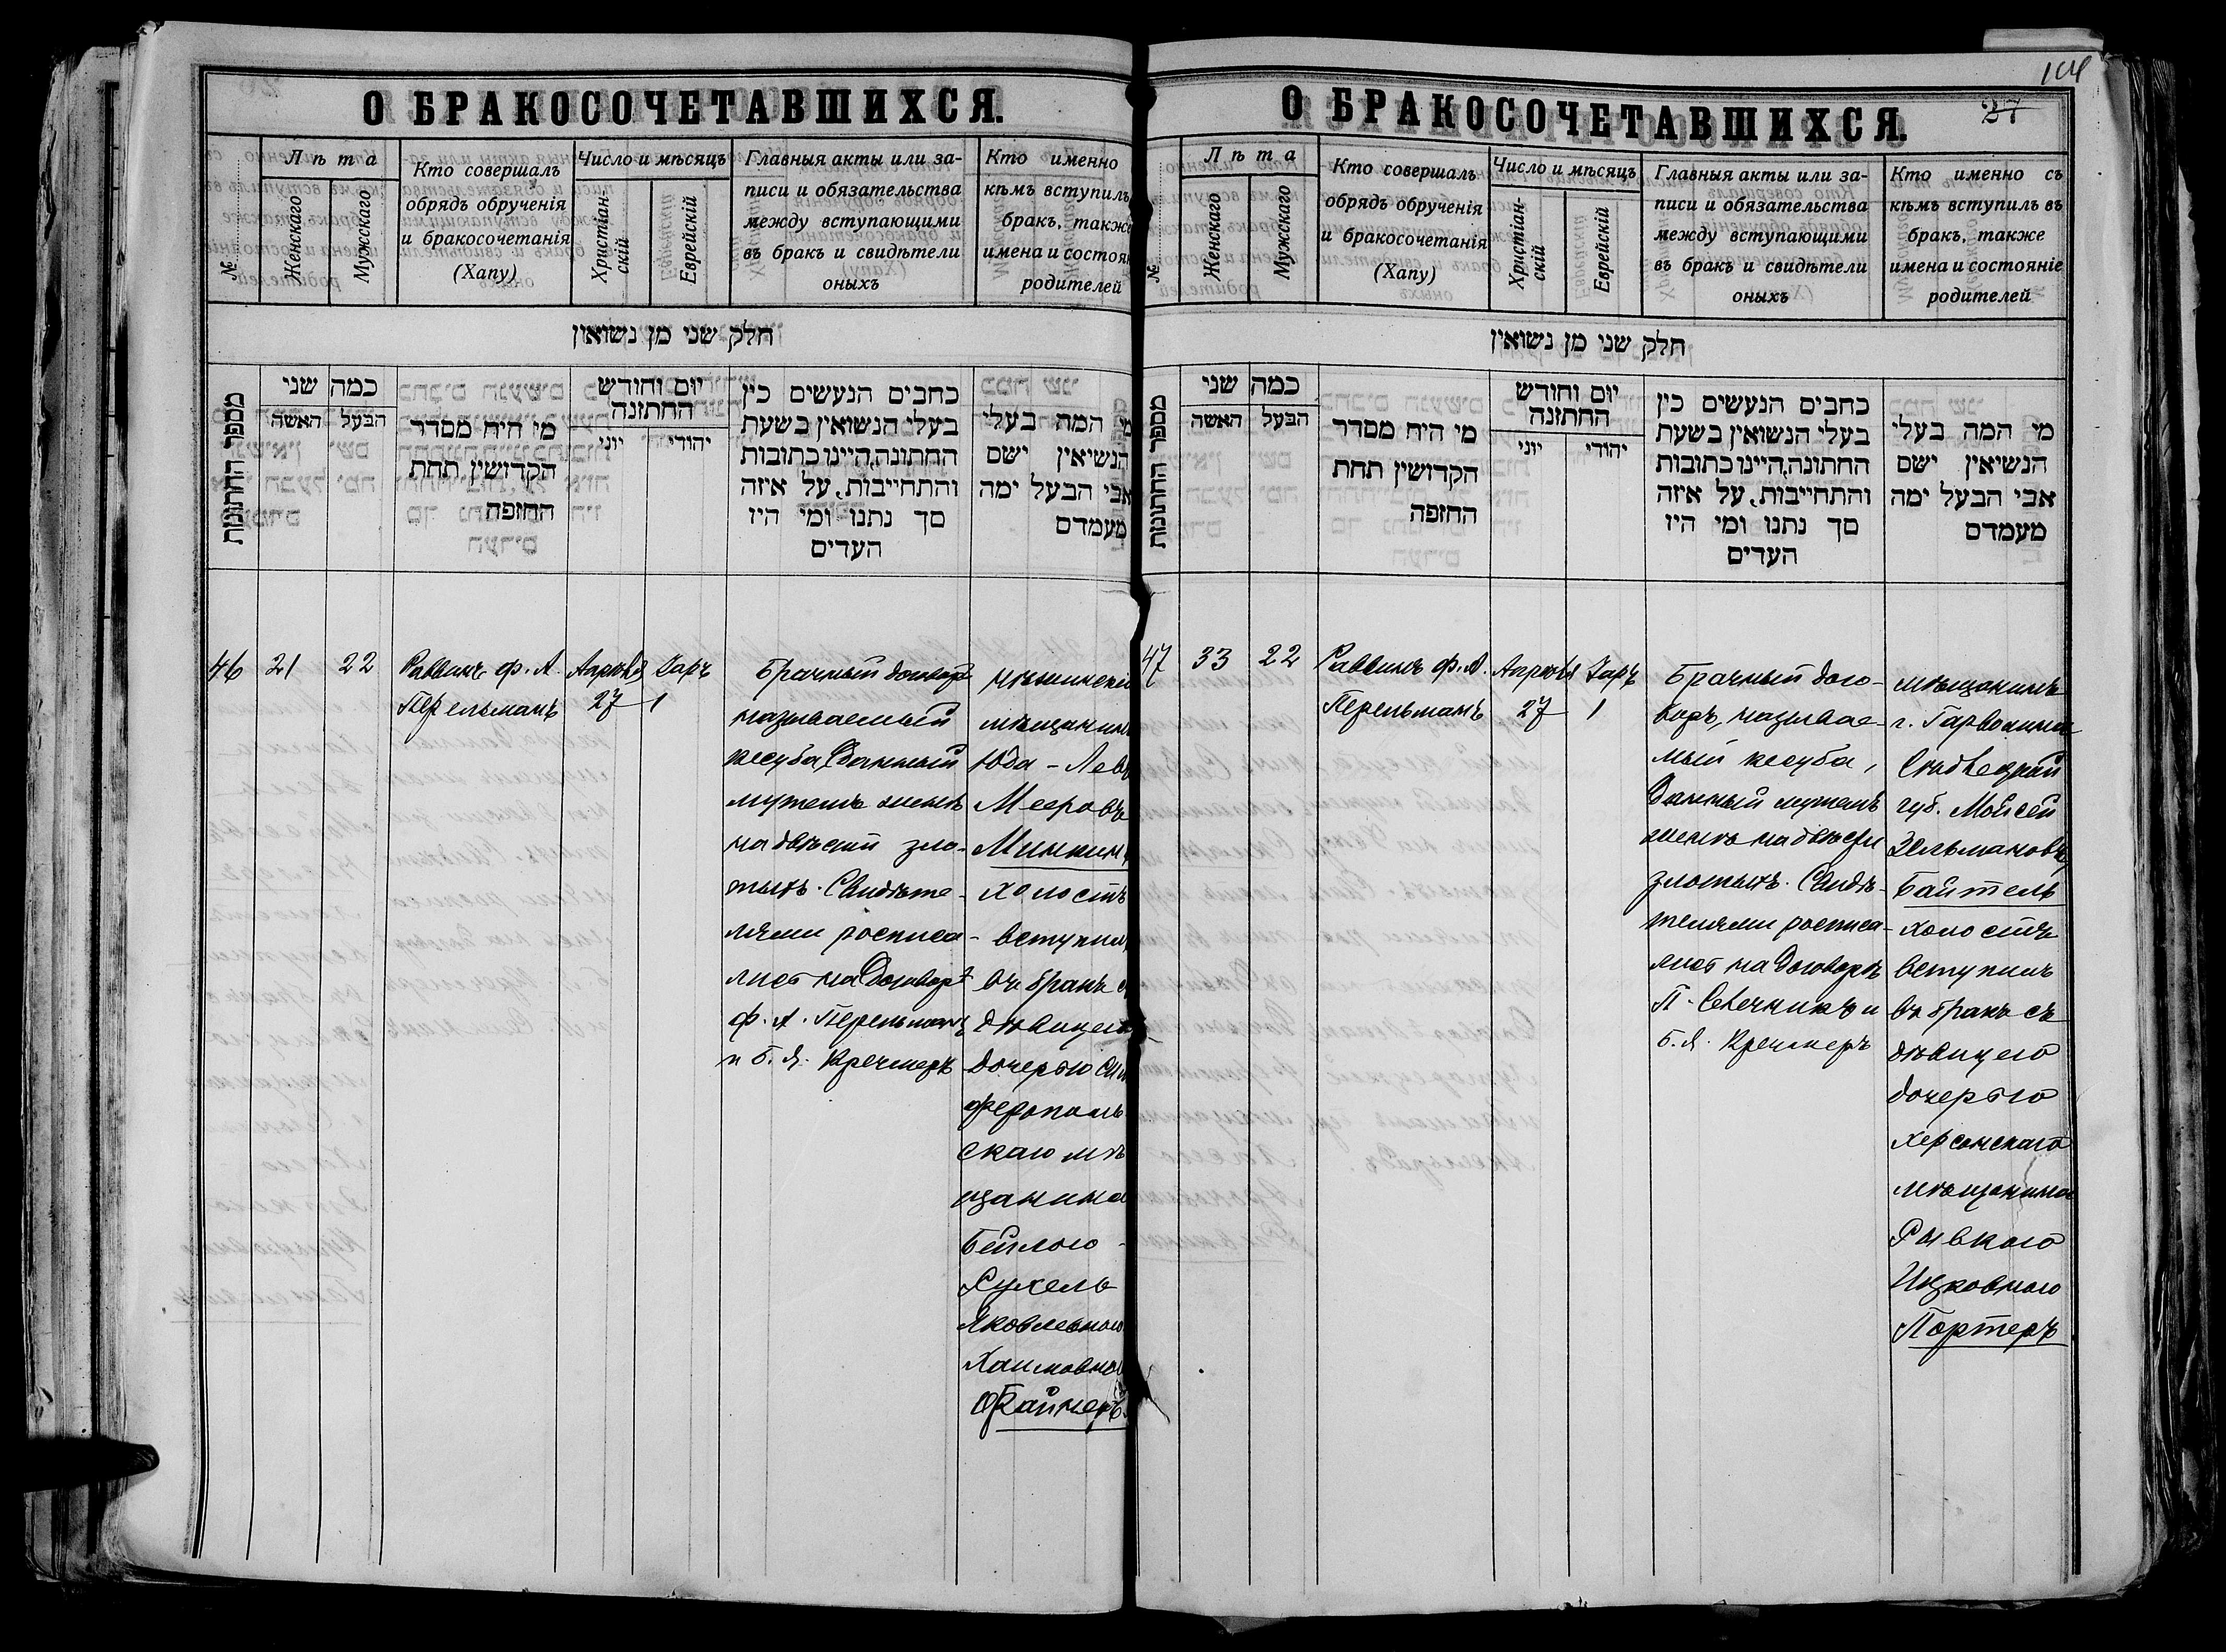 О БРАКОСОЧЕТАВШИХСЯ.
№
Лѣта
Женскаго
Мужскаго
Кто совершалъ
обрядъ обрученія
и бракосочетанія
(Хапу)
Число и мѣсяцъ
Христіан-
скій
Еврейскій
Главныя акты или за-
писи и обязательства
между вступающими
въ бракъ и свидѣтели
оныхъ
Кто именно
кѣмъ вступилъ
бракъ, также
имена и состоян
родителей
חלק שני מן נשואין
מספר החתונות
כמה שני
האשה
הבעל
מי היח מסדר
הקדושין תחת
החופה
יום וחודש
החתונה
יוני
יהודי
כתבים הנעשים בין
בעלי הנשואין בשעת
החתונה, היינו כתובות
והתחייבות, על איזה
סך נתנו ומי היו
העדים
מי המה בעלי
הנשיאין ישם
אבי הבעל ימה
מעמדם
46
21
22
Раввинъ Ф. А.
Перельманъ
Апрѣля
27
Iаръ
1
Брачный договоръ
называемый
кесуба, данный
мужемъ женѣ
на двѣсти зло-
тыхъ. Свидѣте-
лями росписа-
лись на договорѣ
Ф. А. Перельманъ
и Б. Я. Кречмеръ
мѣщанин
Юда - Лей
Мееровъ
Минкин
холостъ
вступил
въ бракъ с
дѣвицею
дочерью Сим
ферополь
скаго мѣ
щанина
Бейлою -
Рухель
Яковлевною
Хаимовною
Файнеръ
104
О БРАКОСОЧЕТАВШИХСЯ.
№
Лѣта
Женскаго
Мужскаго
Кто совершалъ
обрядъ обрученія
и бракосочетанія
(Хапу)
Число и мѣсяцъ
Христіан-
скій
Еврейскій
Главныя акты или за-
писи и обязательства
между вступающими
въ бракъ и свидѣтели
оныхъ
Кто именно съ
кѣмъ вступилъ въ
бракъ, также
имена и состояніе
родителей
חלק שני מן נשואין
מספר החתונות
כמה שני
האשה
הבעל
מי היח מסדר
הקדושין תחת
החופה
יום וחודש
החתונה
יוני
יהודי
כתבים הנעשים בין
בעלי הנשואין בשעת
החתונה, היינו כתובות
והתחייבות, על איזה
סך נתנו ומי היו
העדים
מי המה בעלי
הנשיאין ישם
אבי הבעל ימה
מעמדם
47
33
22
Раввинъ Ф. А.
Перельманъ
Апрѣля
27
Iаръ
1
Брачный дого-
воръ, называе-
мый кесуба,
данный мужемъ
женѣ на двѣсти
злотыхъ. Свидѣ-
телями росписа-
лись на договорѣ
П. Свечникъ и
Б. Я. Кречмеръ
мѣщанинъ
г. Гарволина
Сѣдлецкой
губ. Мойсей
Зельмановъ
Байтель
холостъ
вступилъ
въ бракъ съ
дѣвицею
дочерью
херсонскаго
мѣщанина
Рывкою
Ицковною
Портеръ